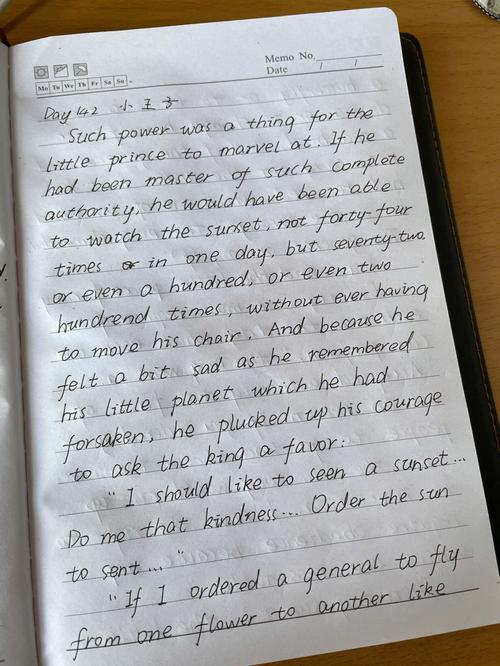 Memo No.
Mo Tu We Th Fr Sa Su
Date / /
Day 142 小王子
Such power was a thing for the
little prince to marvel at. If he
had been master of such complete
authority, he would have been able
to watch the sunset, not forty-four
times or in one day, but seventy-two,
or even a hundred, or even two
hundrend times, without ever having
to move his chair. And because he
felt a bit sad as he remembered
his little planet which he had
forsaken, he plucked up his courage
to ask the king a favor:
"I should like to seen a sunset...
Do me that kindness... Order the sun
to sent..."
"If I ordered a general to fly
from one flower to another like